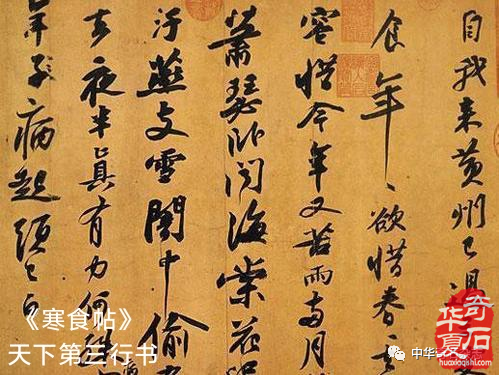 自我來黃州已過
食年〻欲惜春
容惜今年又苦雨兩月
蕭瑟臥聞海棠花
汙燕支雪闇中偷
去夜半真有力何殊
年子病起頭已白
《寒食帖》
天下第三行书
中华
华夏奇石
huaxiaqishi.com